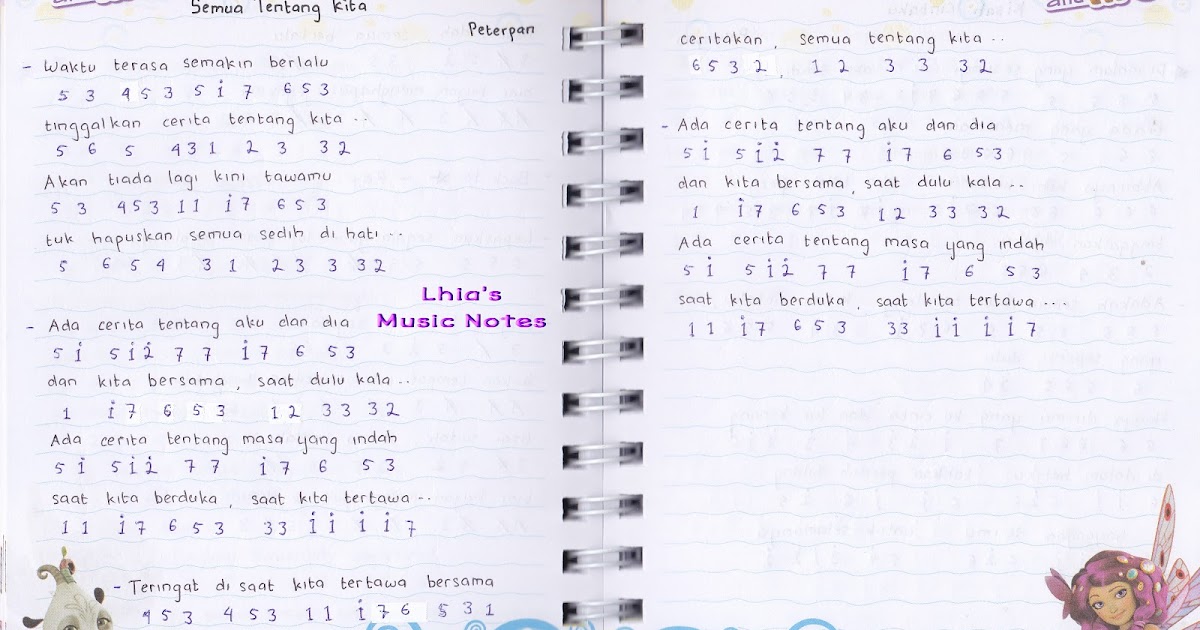 Semua Tentang Kita
Peterpan
- Waktu terasa semakin berlalu
5 3 4 5 3 5 i 7 6 5 3
tinggalkan cerita tentang kita ..
5 6 5 4 3 1 2 3 3 2
Akan tiada lagi kini tawamu
5 3 4 5 3 1 1 i 7 6 5 3
tuk hapuskan semua sedih di hati ...
5 6 5 4 3 1 2 3 3 3 2
Lhia's
Music Notes
- Ada cerita tentang aku dan dia
5 i 5 i 2̇ 7 7 i 7 6 5 3
dan kita bersama, saat dulu kala ..
1 i 7 6 5 3 1 2 3 3 3 2
Ada cerita tentang masa yang indah
5 i 5 i 2̇ 7 7 i 7 6 5 3
saat kita berduka, saat kita tertawa ..
1 1 i 7 6 5 3 3 3 i i i i 7
- Teringat di saat kita tertawa bersama
4 5 3 4 5 3 1 1 i 7 6 5 3 1
ceritakan, semua tentang kita ..
6 5 3 2, 1 2 3 3 3 2
- Ada cerita tentang aku dan dia
5 i 5 i 2̇ 7 7 i 7 6 5 3
dan kita bersama, saat dulu kala ..
1 i 7 6 5 3 1 2 3 3 3 2
Ada cerita tentang masa yang indah
5 i 5 i 2̇ 7 7 i 7 6 5 3
saat kita berduka, saat kita tertawa ...
1 1 i 7 6 5 3 3 3 i i i i 7